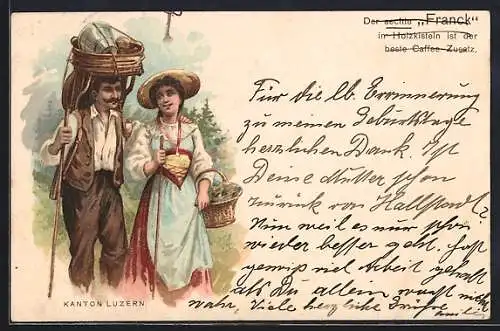 Der aechte „Franck“
in Holzkistein ist der
beste Caffee-Zusatz.
Für die lb. Erinnerung
zu meinem Geburtstage
herzlichen Dank. Ist
Deine Mutter schon
zurück von Hallstadt?
Nun weil es nur schon
wieder besser geht. hast
gewiß viel Arbeit gehabt
als Du allein warst nicht
wahr, Viele herzliche Grüße
KANTON LUZERN